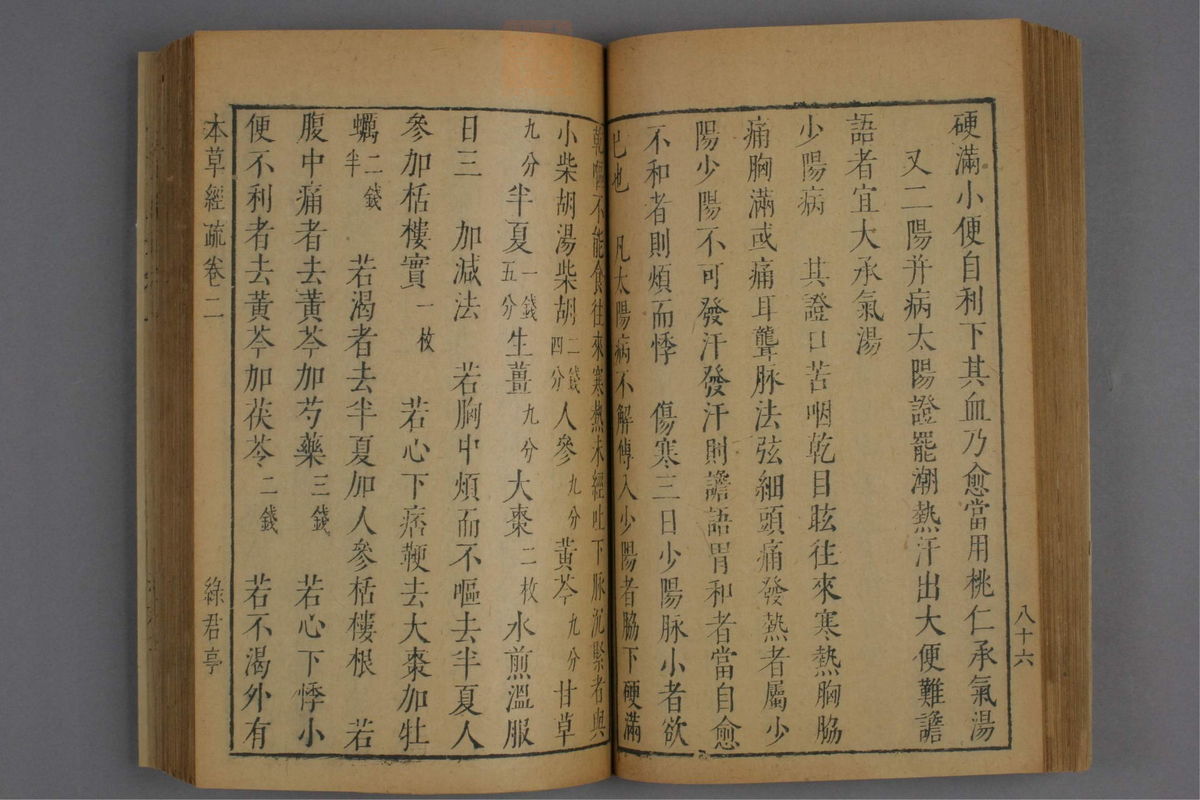 八十六
硬滿小便自利下其血乃愈當用桃仁承氣湯
又二陽并病太陽證罷潮熱汗出大便難譫
語者宜大承氣湯
少陽病　其證口苦咽乾目眩往來寒熱胸脇
痛胸滿或痛耳聾脉法弦細頭痛發熱者屬少
陽少陽不可發汗發汗則譫語胃和者當自愈
不和者則煩而悸　傷寒三日少陽脉小者欲
已也　凡太陽病不解傳入少陽者脇下硬滿
乾嘔不能食往來寒熱未經吐下脉沉緊者與
小柴胡湯柴胡二錢四分人參九分黃芩九分甘草
九分半夏一錢五分生薑九分大棗二枚水煎溫服
日三　加減法　若胸中煩而不嘔去半夏人
參加栝樓實一枚　若心下痞鞕去大棗加牡
蠣二錢半　若渴者去半夏加人參栝樓根　若
腹中痛者去黃芩加芍藥三錢　若心下悸小
便不利者去黃芩加茯苓二錢　若不渴外有
本草經疏卷二　綠君亭